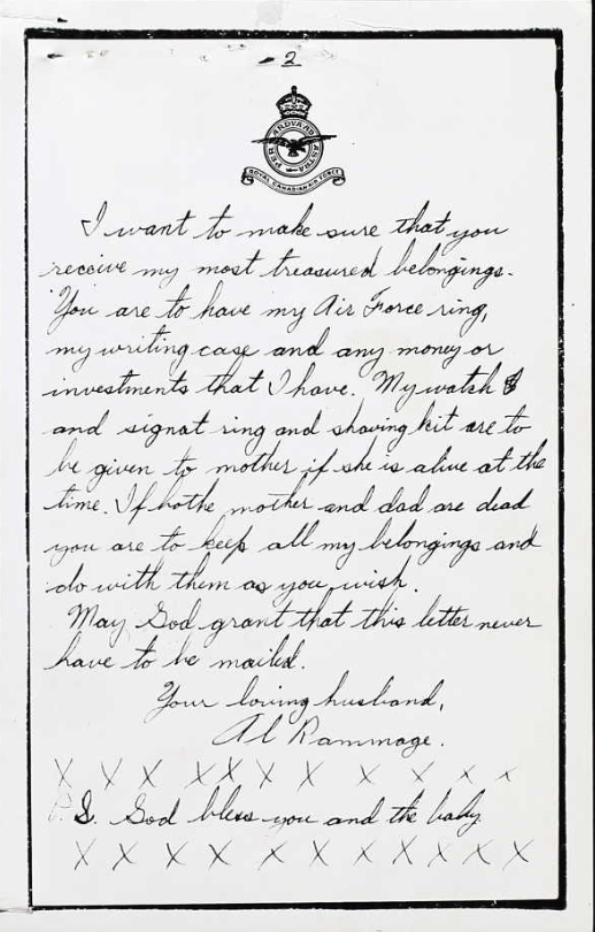 - 2
PER ARDVA AD ASTRA
ROYAL CANADIAN AIR FORCE
I want to make sure that you
receive my most treasured belongings.
You are to have my Air Force ring,
my writing case and any money or
investments that I have. My watch
and signat ring and shaving kit are to
be given to mother if she is alive at the
time. If bothe mother and dad are dead
you are to keep all my belongings and
do with them as you wish.
May God grant that this letter never
have to be mailed.
Your loving husband,
Al Rammage.
X X X X X X X X X X X X
P.S. God bless you and the baby.
X X X X X X X X X X X